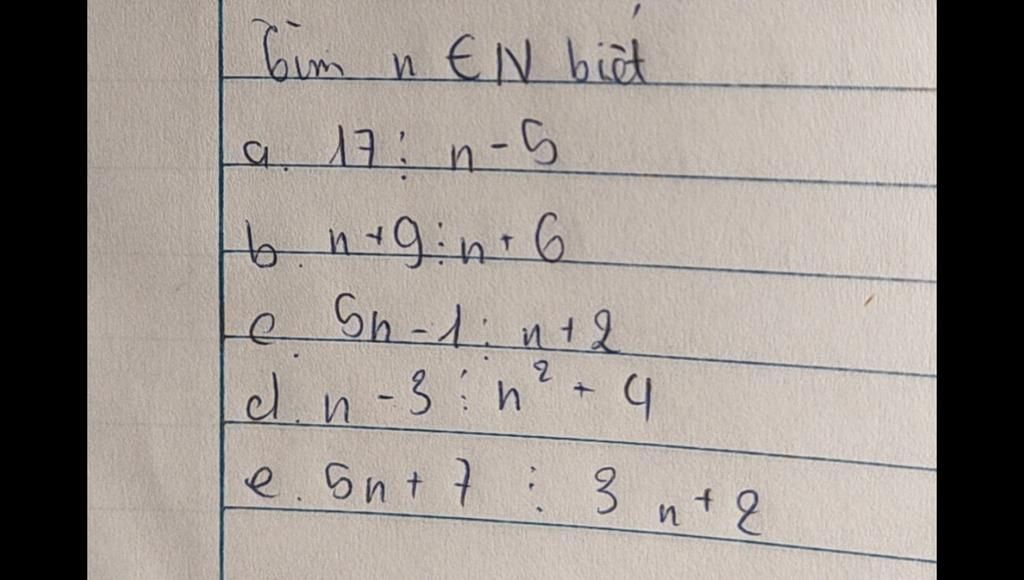 Tìm n ∈ N biết
a. 17 ⋮ n - 5
b. n + 9 ⋮ n + 6
c. 5n - 1 ⋮ n + 2
d. n - 3 ⋮ n² + 4
e. 5n + 7 ⋮ 3n + 2